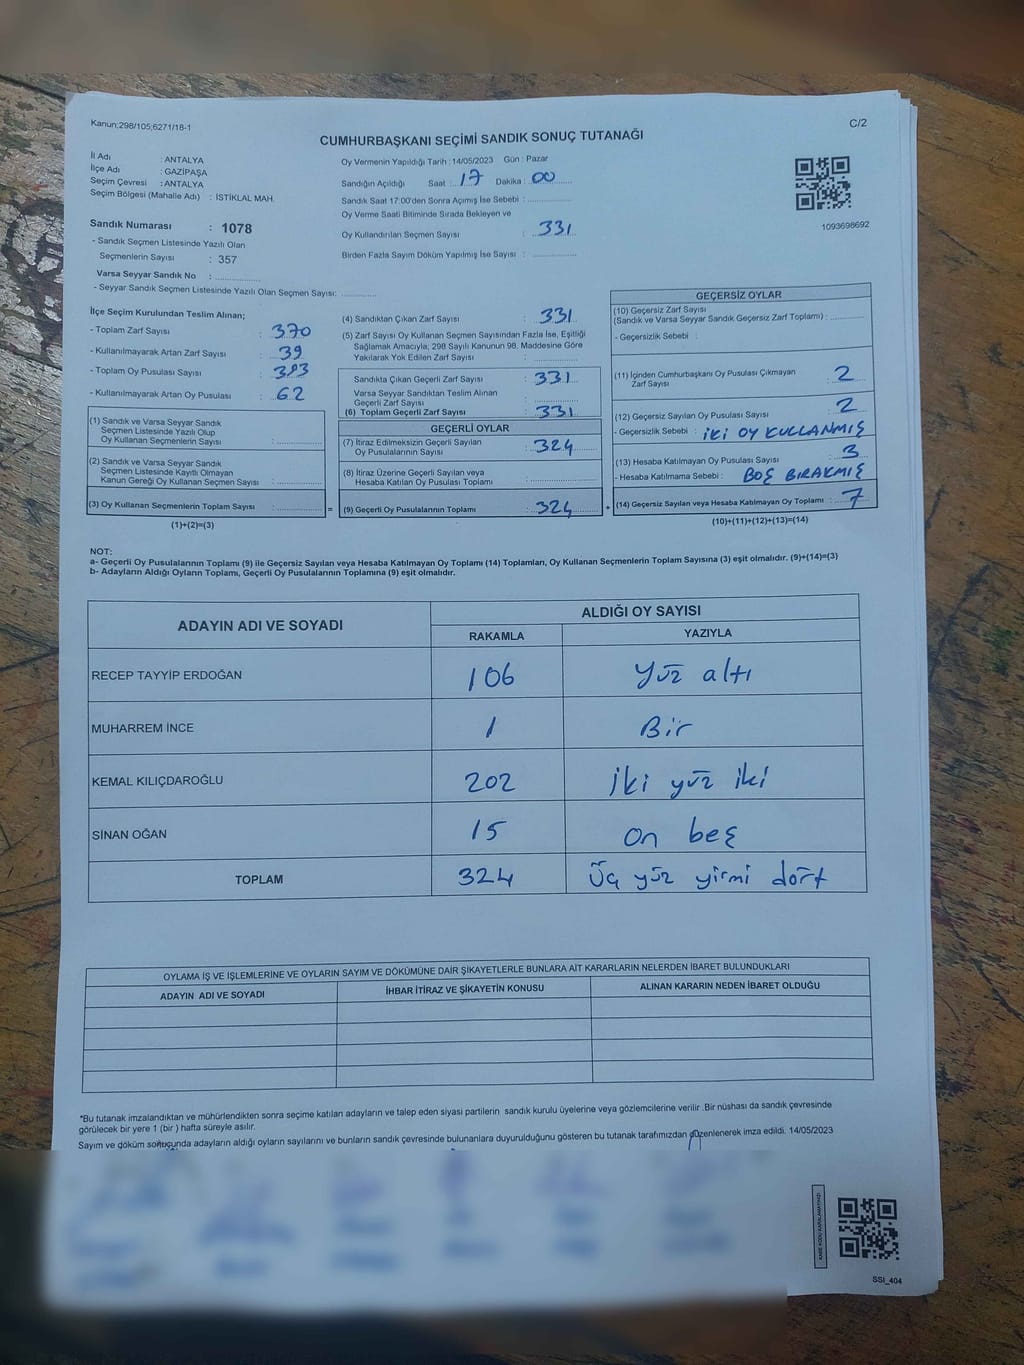 Kanun;298/105;6271/18-1
C/2
CUMHURBAŞKANI SEÇİMİ SANDIK SONUÇ TUTANAĞI
İl Adı : ANTALYA
İlçe Adı : GAZİPAŞA
Seçim Çevresi : ANTALYA
Seçim Bölgesi (Mahalle Adı) : İSTİKLAL MAH.
Sandık Numarası : 1078
- Sandık Seçmen Listesinde Yazılı Olan
Seçmenlerin Sayısı : 357
Varsa Seyyar Sandık No :
- Seyyar Sandık Seçmen Listesinde Yazılı Olan Seçmen Sayısı:
Oy Vermenin Yapıldığı Tarih : 14/05/2023 Gün : Pazar
Sandığın Açıldığı Saat : 17 Dakika : 00
Sandık Saat 17:00'den Sonra Açımış İse Sebebi :
Oy Verme Saati Bitiminde Sırada Bekleyen ve
Oy Kullandırılan Seçmen Sayısı : 331
Birden Fazla Sayım Döküm Yapılmış İse Sayısı :
1093698692
İlçe Seçim Kurulundan Teslim Alınan;
- Toplam Zarf Sayısı : 370
- Kullanılmayarak Artan Zarf Sayısı : 39
- Toplam Oy Pusulası Sayısı : 393
- Kullanılmayarak Artan Oy Pusulası : 62
(1) Sandık ve Varsa Seyyar Sandık
Seçmen Listesinde Yazılı Olup
Oy Kullanan Seçmenlerin Sayısı :
(2) Sandık ve Varsa Seyyar Sandık
Seçmen Listesinde Kayıtlı Olmayan
Kanun Gereği Oy Kullanan Seçmen Sayısı :
(3) Oy Kullanan Seçmenlerin Toplam Sayısı : =
(1)+(2)=(3)
(4) Sandıktan Çıkan Zarf Sayısı : 331
(5) Zarf Sayısı Oy Kullanan Seçmen Sayısından Fazla İse, Eşitliği
Sağlamak Amacıyla, 298 Sayılı Kanunun 98. Maddesine Göre
Yakılarak Yok Edilen Zarf Sayısı :
Sandıkta Çıkan Geçerli Zarf Sayısı : 331
Varsa Seyyar Sandıktan Teslim Alınan
Geçerli Zarf Sayısı :
(6) Toplam Geçerli Zarf Sayısı : 331
GEÇERLİ OYLAR
(7) İtiraz Edilmeksizin Geçerli Sayılan
Oy Pusulalarının Sayısı : 324
(8) İtiraz Üzerine Geçerli Sayılan veya
Hesaba Katılan Oy Pusulası Toplamı :
(9) Geçerli Oy Pusulalarının Toplamı : 324 +
GEÇERSİZ OYLAR
(10) Geçersiz Zarf Sayısı
(Sandık ve Varsa Seyyar Sandık Geçersiz Zarf Toplamı) :
- Geçersizlik Sebebi :
(11) İçinden Cumhurbaşkanı Oy Pusulası Çıkmayan
Zarf Sayısı : 2
(12) Geçersiz Sayılan Oy Pusulası Sayısı : 2
- Geçersizlik Sebebi : İKİ OY KULLANMIŞ
(13) Hesaba Katılmayan Oy Pusulası Sayısı : 3
- Hesaba Katılmama Sebebi : BOŞ BIRAKMIŞ
(14) Geçersiz Sayılan veya Hesaba Katılmayan Oy Toplamı : 7
(10)+(11)+(12)+(13)=(14)
NOT:
a- Geçerli Oy Pusulalarının Toplamı (9) ile Geçersiz Sayılan veya Hesaba Katılmayan Oy Toplamı (14) Toplamları, Oy Kullanan Seçmenlerin Toplam Sayısına (3) eşit olmalıdır. (9)+(14)=(3)
b- Adayların Aldığı Oyların Toplamı, Geçerli Oy Pusulalarının Toplamına (9) eşit olmalıdır.
ADAYIN ADI VE SOYADI
ALDIĞI OY SAYISI
RAKAMLA YAZIYLA
RECEP TAYYİP ERDOĞAN 106 Yüz altı
MUHARREM İNCE 1 Bir
KEMAL KILIÇDAROĞLU 202 İki yüz iki
SİNAN OĞAN 15 on beş
TOPLAM 324 Üç yüz yirmi dört
OYLAMA İŞ VE İŞLEMLERİNE VE OYLARIN SAYIM VE DÖKÜMÜNE DAİR ŞİKAYETLERLE BUNLARA AİT KARARLARIN NELERDEN İBARET BULUNDUKLARI
ADAYIN ADI VE SOYADI İHBAR İTİRAZ VE ŞİKAYETİN KONUSU ALINAN KARARIN NEDEN İBARET OLDUĞU
*Bu tutanak imzalandıktan ve mühürlendikten sonra seçime katılan adayların ve talep eden siyasi partilerin sandık kurulu üyelerine veya gözlemcilerine verilir .Bir nüshası da sandık çevresinde
görülecek bir yere 1 (bir ) hafta süreyle asılır.
Sayım ve döküm sonuçunda adayların aldığı oyların sayılarını ve bunların sandık çevresinde bulunanlara duyurulduğunu gösteren bu tutanak tarafımızdan düzenlenerek imza edildi. 14/05/2023
SSİ_404